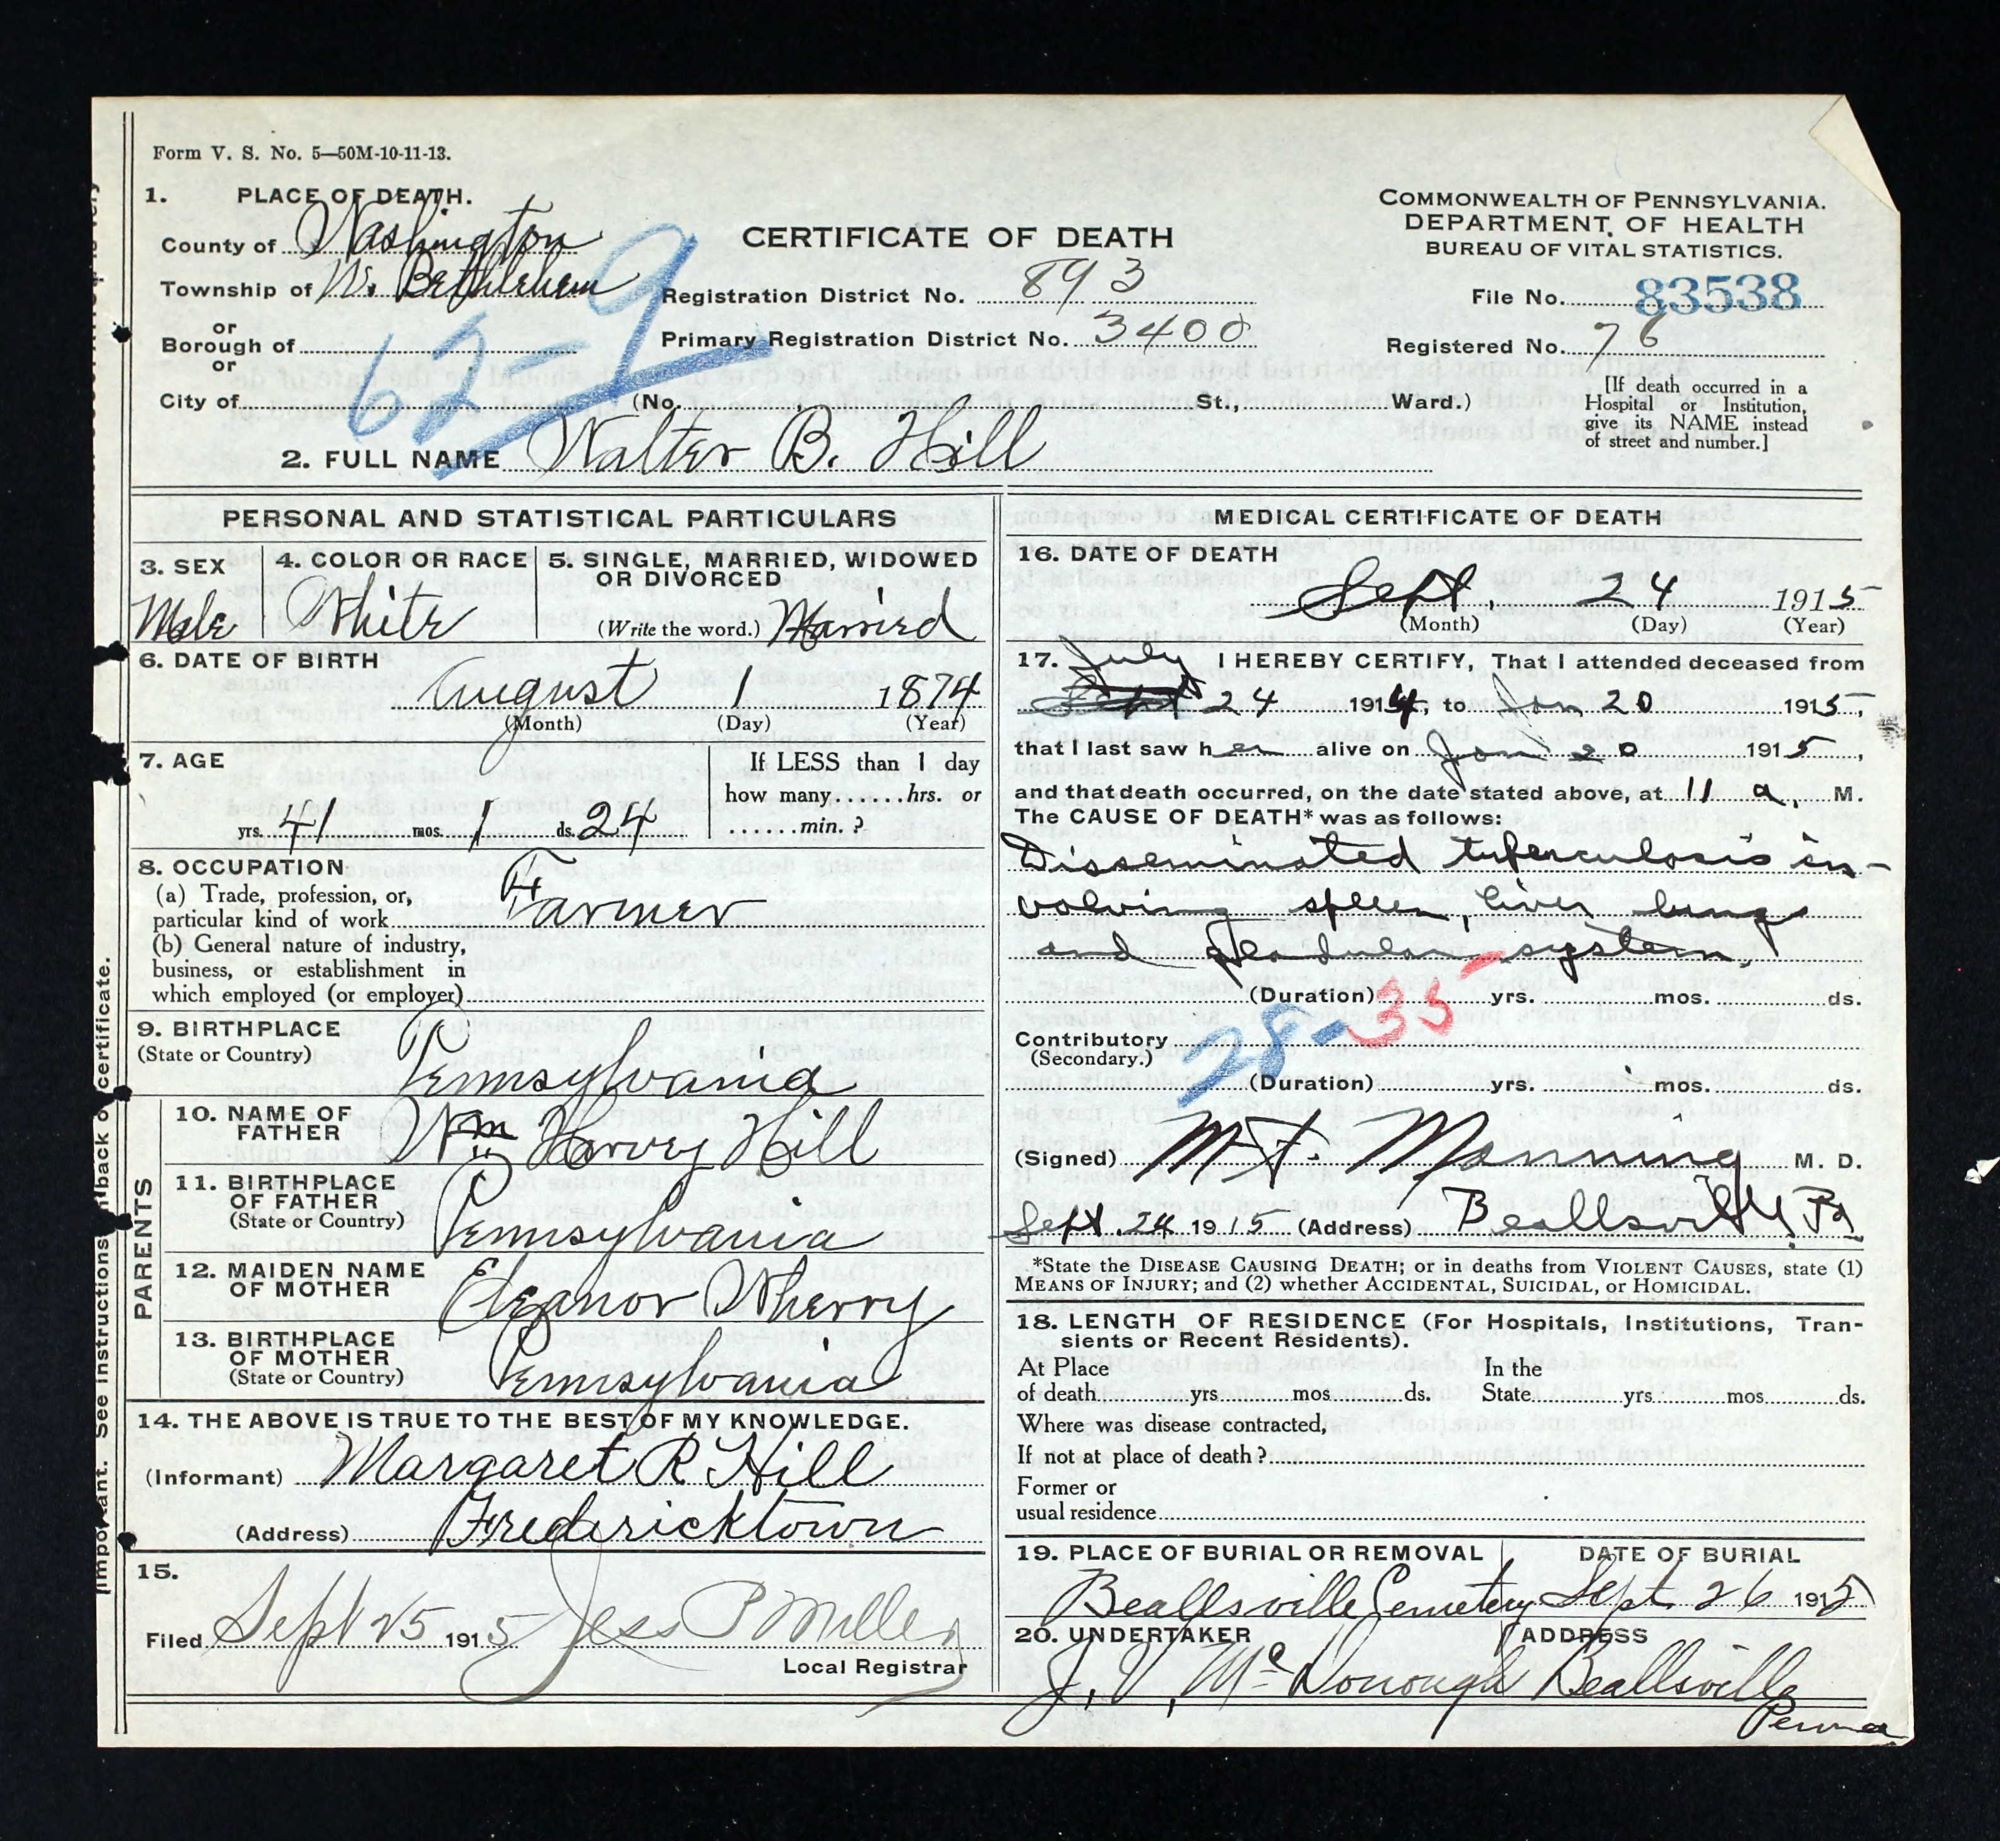 Form V. S. No. 5—50M-10-11-13.
1. PLACE OF DEATH.
County of Washington
Township of W. Bethlehem
or
Borough of
or
City of
62-9
CERTIFICATE OF DEATH
Registration District No. 893
Primary Registration District No. 3400
(No. St., Ward.)
COMMONWEALTH OF PENNSYLVANIA.
DEPARTMENT OF HEALTH
BUREAU OF VITAL STATISTICS.
File No. 83538
Registered No. 76
[If death occurred in a
Hospital or Institution,
give its NAME instead
of street and number.]
2. FULL NAME Walter B. Hill
PERSONAL AND STATISTICAL PARTICULARS
3. SEX
Male
4. COLOR OR RACE
White
5. SINGLE, MARRIED, WIDOWED
OR DIVORCED
(Write the word.) Married
6. DATE OF BIRTH
August 1 1874
(Month) (Day) (Year)
7. AGE
yrs. 41 mos. 1 ds. 24
If LESS than 1 day
how many......hrs. or
......min. ?
8. OCCUPATION
(a) Trade, profession, or,
particular kind of work Farmer
(b) General nature of industry,
business, or establishment in
which employed (or employer)
9. BIRTHPLACE
(State or Country)
Pennsylvania
PARENTS
10. NAME OF
FATHER Wm Harvey Hill
11. BIRTHPLACE
OF FATHER
(State or Country) Pennsylvania
12. MAIDEN NAME
OF MOTHER Eleanor Wherry
13. BIRTHPLACE
OF MOTHER
(State or Country) Pennsylvania
14. THE ABOVE IS TRUE TO THE BEST OF MY KNOWLEDGE.
(Informant) Margaret R Hill
(Address) Fredericktown
15.
Filed Sept 25 1915 Jess P Miller
Local Registrar
MEDICAL CERTIFICATE OF DEATH
16. DATE OF DEATH
Sept. 24 1915
(Month) (Day) (Year)
17. July I HEREBY CERTIFY, That I attended deceased from
Sept 24 1914, to Jan 20 1915,
that I last saw h alive on Jan 20 1915,
and that death occurred, on the date stated above, at 11 a. M.
The CAUSE OF DEATH* was as follows:
Disseminated tuberculosis in-
volving spleen, liver lungs
and glandular system.
(Duration) yrs. mos. ds.
28-35
Contributory
(Secondary.)
(Duration) yrs. mos. ds.
(Signed) M. F. Manning M. D.
Sept. 24 1915 (Address) Beallsville, Pa
*State the DISEASE CAUSING DEATH; or in deaths from VIOLENT CAUSES, state (1)
MEANS OF INJURY; and (2) whether ACCIDENTAL, SUICIDAL, or HOMICIDAL.
18. LENGTH OF RESIDENCE (For Hospitals, Institutions, Tran-
sients or Recent Residents).
At Place In the
of death yrs mos ds. State yrs mos ds.
Where was disease contracted,
If not at place of death?
Former or
usual residence
19. PLACE OF BURIAL OR REMOVAL
Beallsville Cemetery
DATE OF BURIAL
Sept. 26 1915
20. UNDERTAKER
J. V. McDonough
ADDRESS
Beallsville
Penna
Important. See instructions on back of certificate.